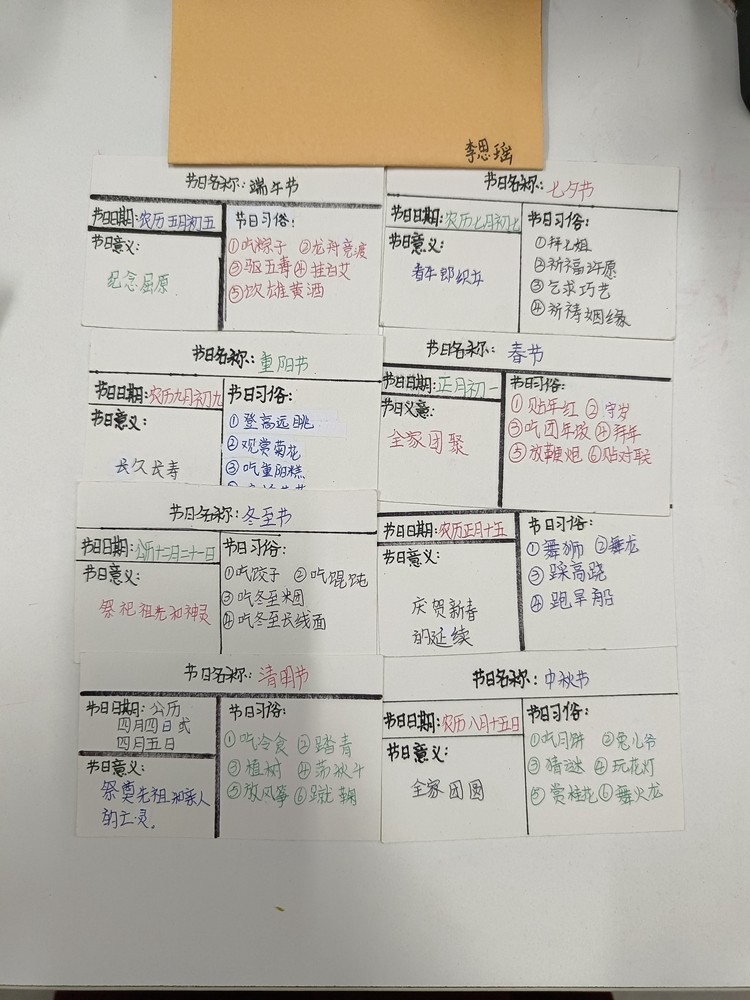 李思瑶
节日名称：端午节
节日日期：农历五月初五
节日意义：
纪念屈原
节日习俗：
①吃粽子 ②龙舟竞渡
③驱五毒 ④挂白艾
⑤饮雄黄酒
节日名称：七夕节
节日日期：农历七月初七
节日意义：
牛郎织女
节日习俗：
①拜七姐
②祈福许愿
③乞求巧艺
④祈祷姻缘
节日名称：重阳节
节日日期：农历九月初九
节日意义：
长久长寿
节日习俗：
①登高远眺
②观赏菊花
③吃重阳糕
节日名称：春节
节日日期：正月初一
节日意义：
全家团聚
节日习俗：
①贴年红 ②守岁
③吃团年饭 ④拜年
⑤放鞭炮 ⑥贴对联
节日名称：冬至节
节日日期：公历十二月二十一日
节日意义：
祭祀祖先和神灵
节日习俗：
①吃饺子 ②吃馄饨
③吃冬至米团
④吃冬至长线面
节日日期：农历正月十五
节日意义：
庆贺新春
的延续
节日习俗：
①舞狮 ②舞龙
③踩高跷
④跑旱船
节日名称：清明节
节日日期：公历
四月四日或
四月五日
节日意义：
祭奠先祖和亲人
的亡灵。
节日习俗：
①吃冷食 ②踏青
③植树 ④荡秋千
⑤放风筝 ⑥蹴鞠
节日名称：中秋节
节日日期：农历八月十五日
节日意义：
全家团圆
节日习俗：
①吃月饼 ②兔儿爷
③猜谜 ④玩花灯
⑤赏桂花 ⑥舞火龙